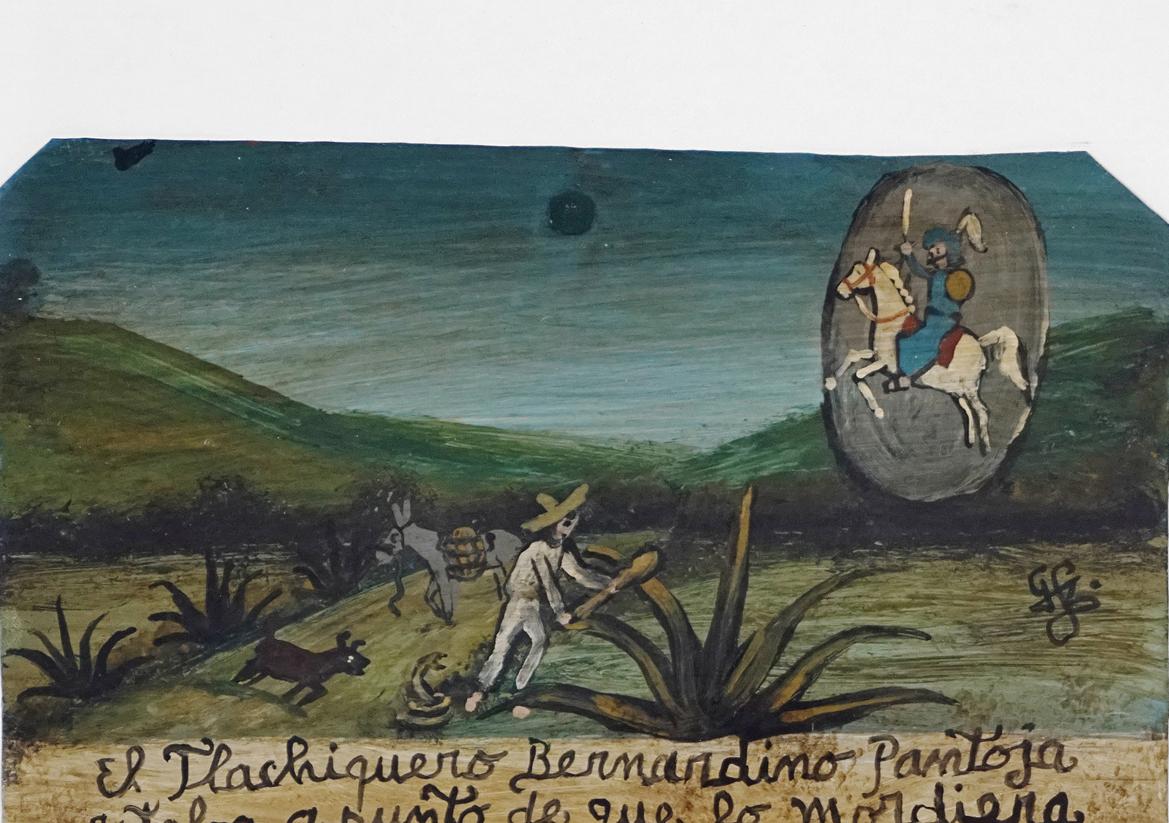 El Tlachiquero Bernardino Pantoja
a punto de que lo mordiera